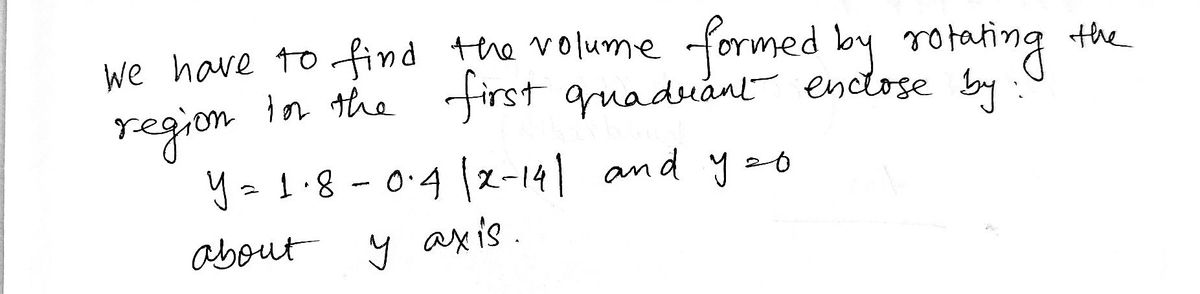 We have to find the volume formed by rotating the
region in the first quadrant enclose by :
y = 1.8 - 0.4 |x-14| and y=0
about y axis.